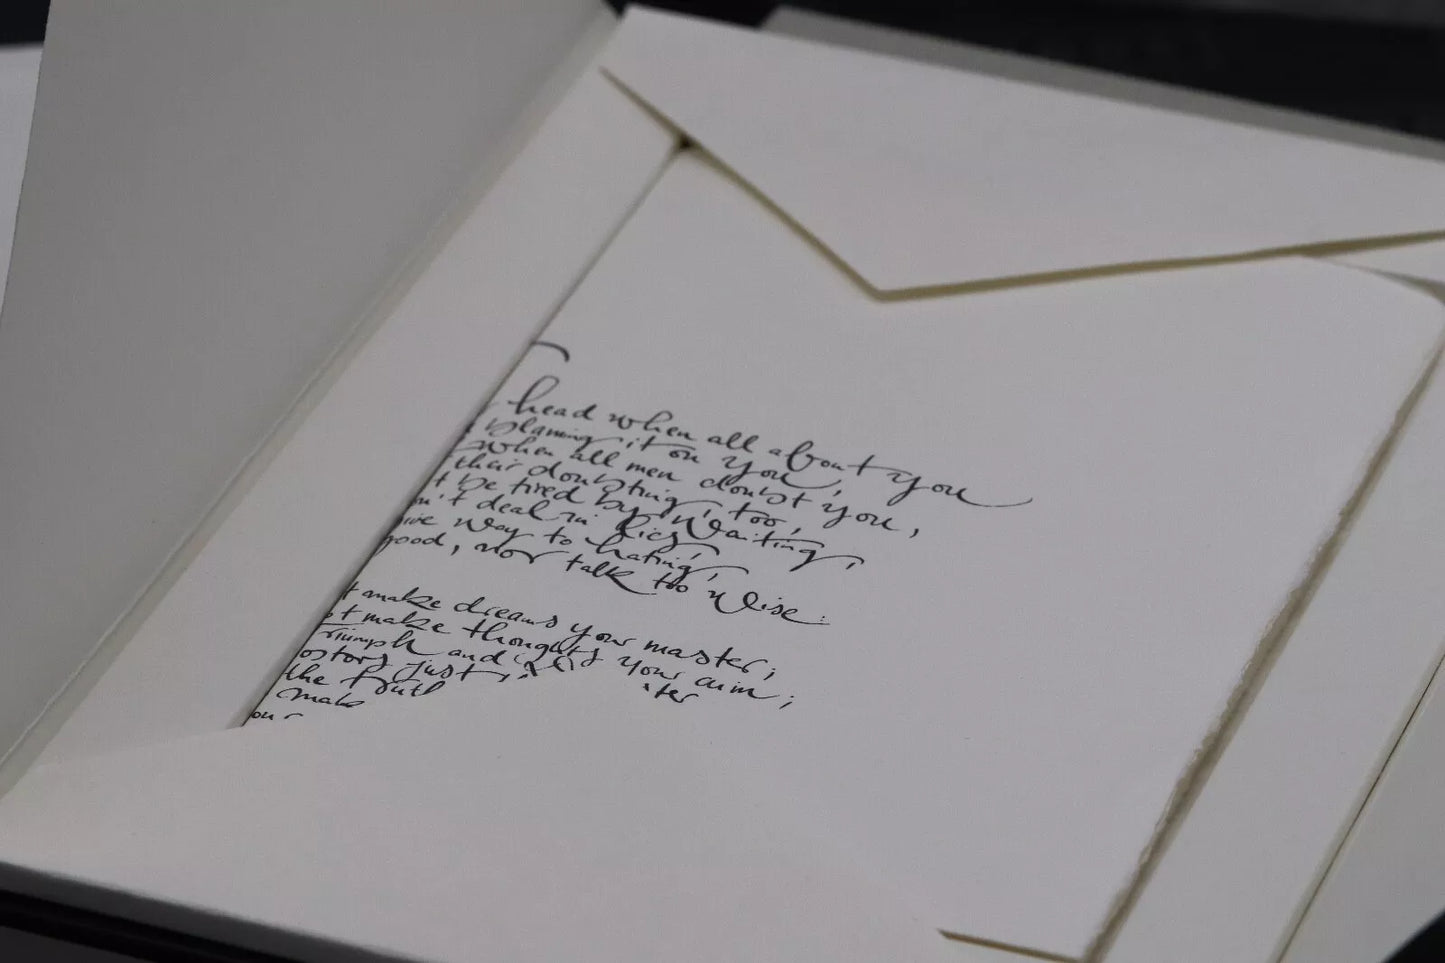 head when all about you
blaming it on you,
when all men doubt you,
their doubting, too,
t be tired by waiting,
n't deal in lies,
ive way to hating,
good, nor talk too wise:
t make dreams your master;
ot make thoughts your aim;
riumph and
just
the truth
make
our